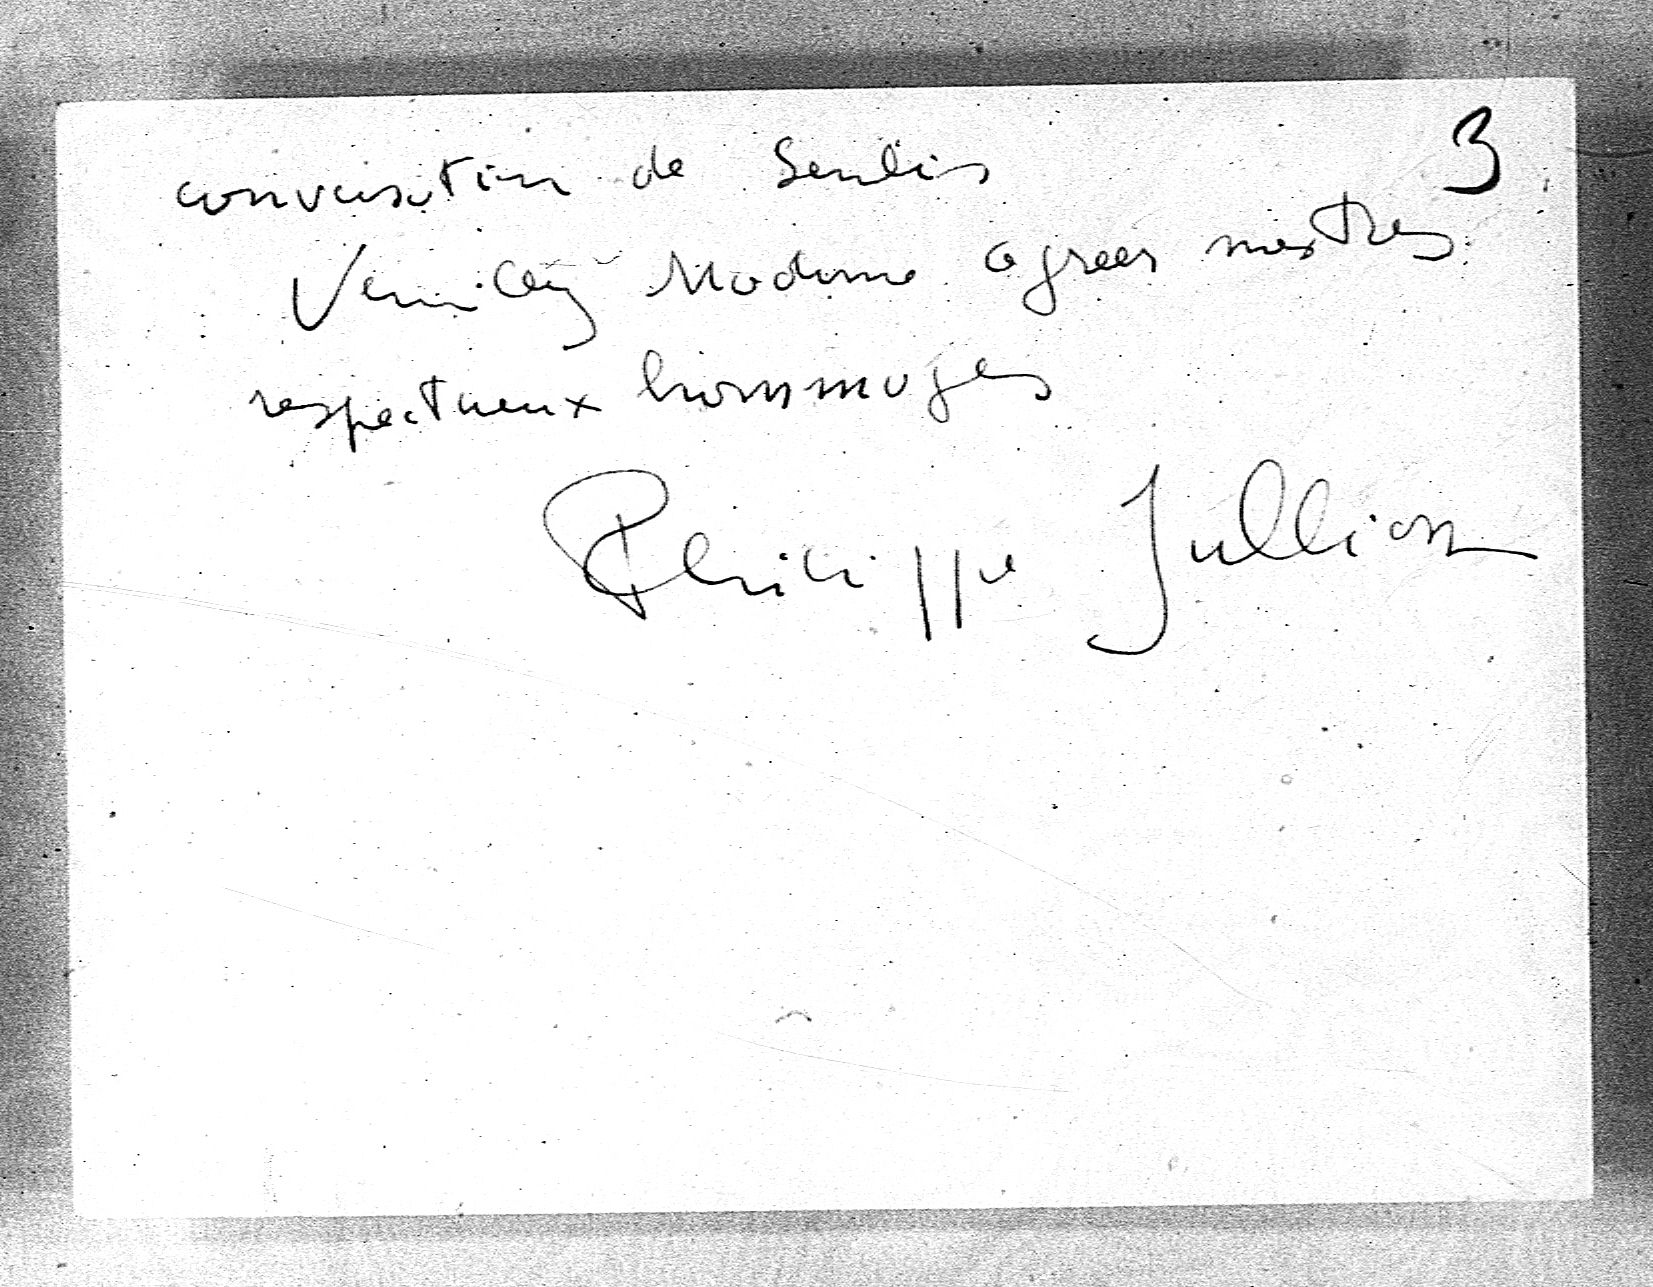 3
conversation de Senlis
Veuillez Madame agreer mes tres
respectueux hommages
Philippe Jullian